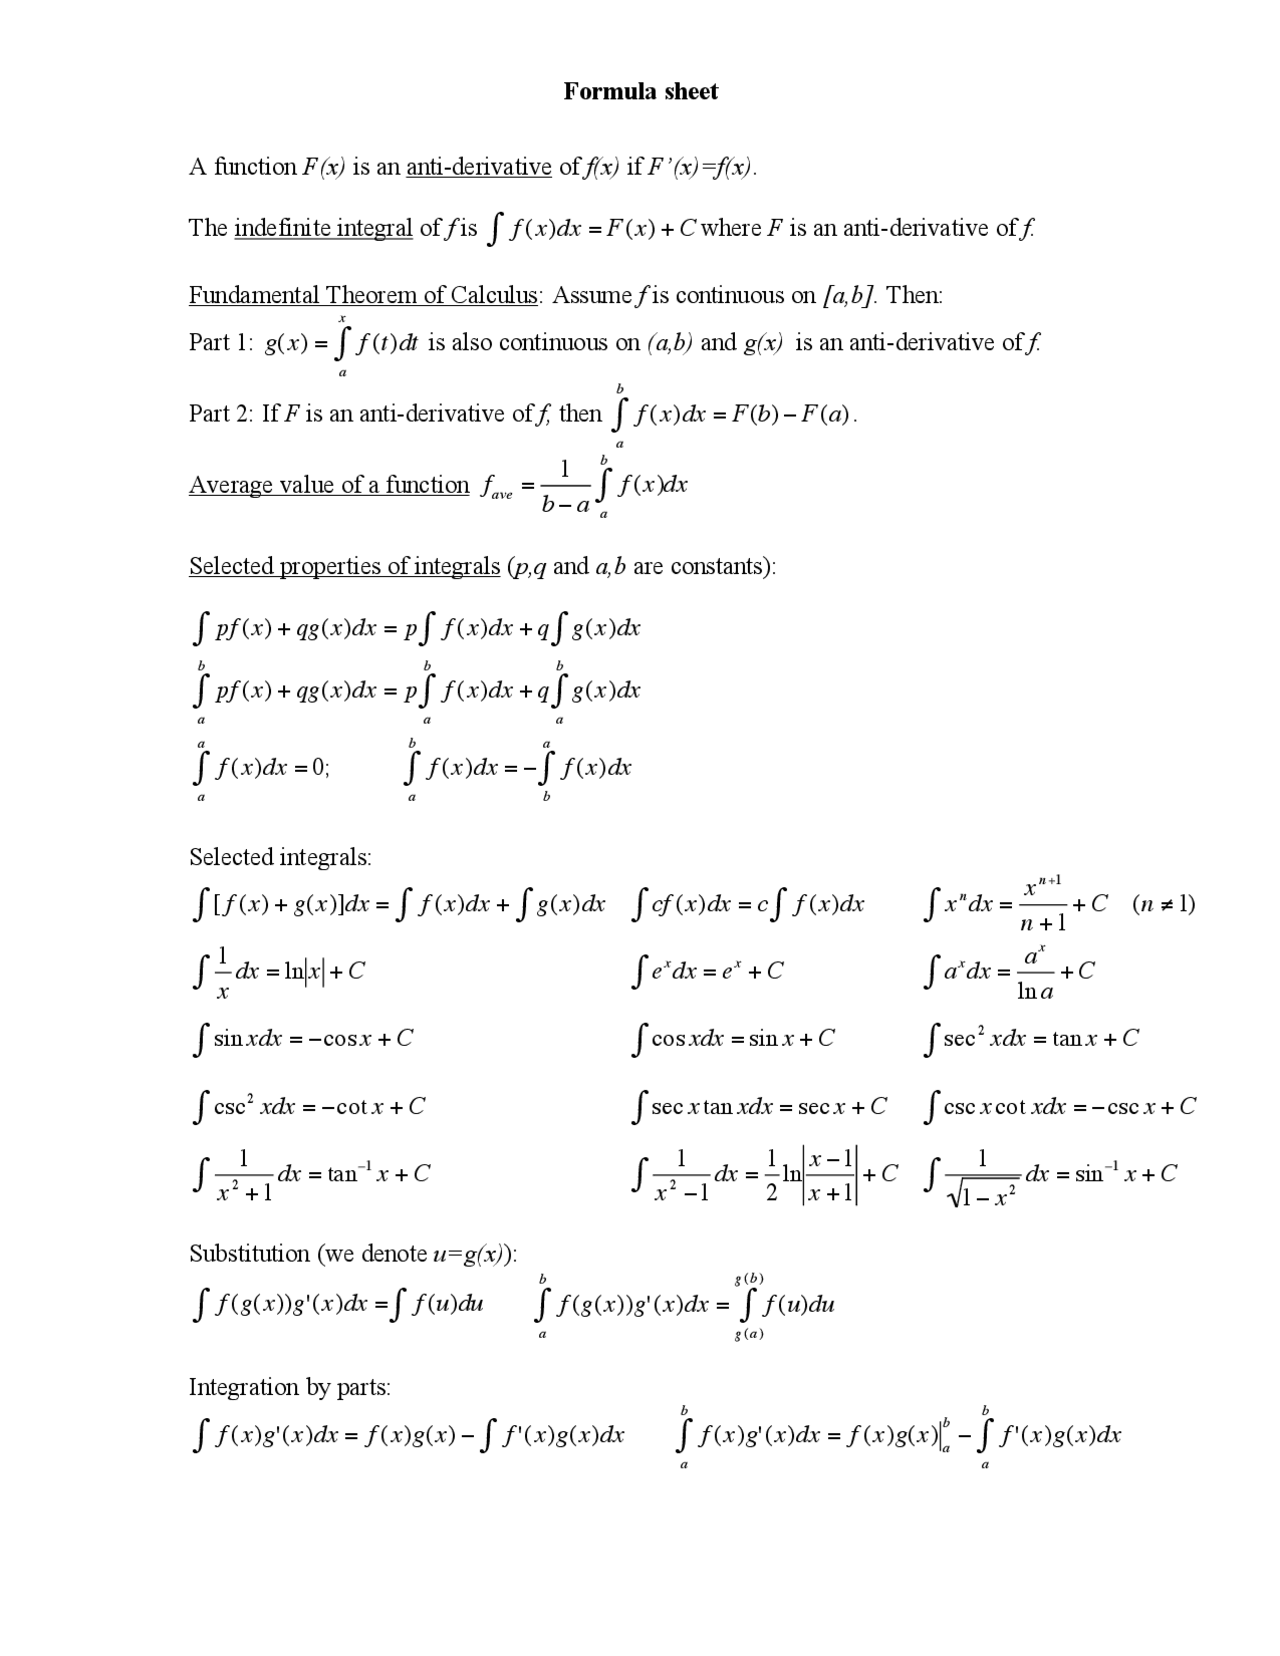 Formula sheet
A function F(x) is an anti-derivative of f(x) if F'(x)=f(x).
The indefinite integral of f is ∫ f(x)dx = F(x) + C where F is an anti-derivative of f.
Fundamental Theorem of Calculus: Assume f is continuous on [a,b]. Then:
Part 1: g(x) = ∫_a^x f(t)dt is also continuous on (a,b) and g(x) is an anti-derivative of f.
Part 2: If F is an anti-derivative of f, then ∫_a^b f(x)dx = F(b) − F(a).
Average value of a function f_ave = 1/(b − a) ∫_a^b f(x)dx
Selected properties of integrals (p,q and a,b are constants):
∫ pf(x) + qg(x)dx = p∫ f(x)dx + q∫ g(x)dx
∫_a^b pf(x) + qg(x)dx = p∫_a^b f(x)dx + q∫_a^b g(x)dx
∫_a^a f(x)dx = 0; ∫_a^b f(x)dx = −∫_b^a f(x)dx
Selected integrals:
∫ [f(x) + g(x)]dx = ∫ f(x)dx + ∫ g(x)dx ∫ cf(x)dx = c∫ f(x)dx ∫ x^n dx = x^(n+1)/(n + 1) + C (n ≠ 1)
∫ 1/x dx = ln|x| + C ∫ e^x dx = e^x + C ∫ a^x dx = a^x/ln a + C
∫ sin xdx = −cos x + C ∫ cos xdx = sin x + C ∫ sec² xdx = tan x + C
∫ csc² xdx = −cot x + C ∫ sec x tan xdx = sec x + C ∫ csc x cot xdx = −csc x + C
∫ 1/(x² + 1) dx = tan⁻¹ x + C ∫ 1/(x² − 1) dx = 1/2 ln|(x − 1)/(x + 1)| + C ∫ 1/√(1 − x²) dx = sin⁻¹ x + C
Substitution (we denote u=g(x)):
∫ f(g(x))g'(x)dx = ∫ f(u)du ∫_a^b f(g(x))g'(x)dx = ∫_g(a)^g(b) f(u)du
Integration by parts:
∫ f(x)g'(x)dx = f(x)g(x) − ∫ f'(x)g(x)dx ∫_a^b f(x)g'(x)dx = f(x)g(x)|_a^b − ∫_a^b f'(x)g(x)dx